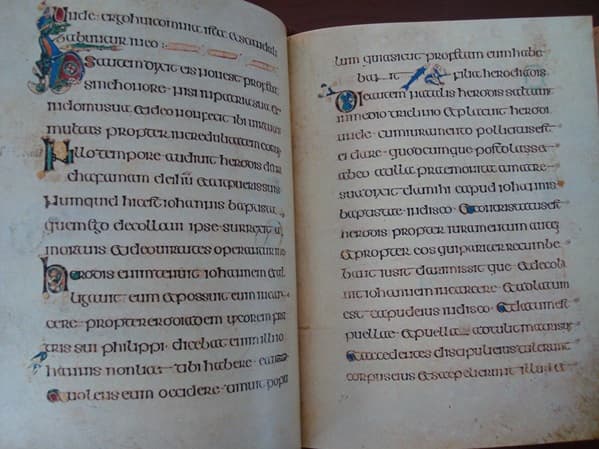 Unde ergo huic omnia ista et scandali
zabantur in eo
autem dixit eis non est profeta
sine honore nisi in patria sua et
in domu sua et ideo non fecit ibi
multas propter incredulitatem
illo tempore audiuit herodis
famam et ait pueris suis
Numquid hic est iohannis baptista
quem ego decollaui ipse surrexit a
mortuis et ideo uirtutes operantur in
herodis enim tenuit iohannem et al
ligauit eum et possuit eum in car
cere propter erodiadem uxorem fra
tris sui philippi dicebat enim illi io
hannis non licet tibi habere eam
et uolens eum occidere timuit popu
lum quia sicut profetam eum habe
bant filia herodiadis
Die autem natalis herodis saltauit
in medio triclinio et placuit herodi
unde cum iuramento pollicitus est
ei dare quodcumque postolasset
ab eo at illa praemonita a matre
sua dixit da mihi capud iohannis
baptistae in disco et contristatus est
herodis propter iuramentum autem
et propter eos qui pariter recumbe
bant iusit dari missit que et decolla
uit iohannem in carcere et allatum
est capud eius in disco et datum est
puellae et puella attulit matri suae
Et accedentes discipuli eius tulerunt
corpus eius et sepelierunt illud et